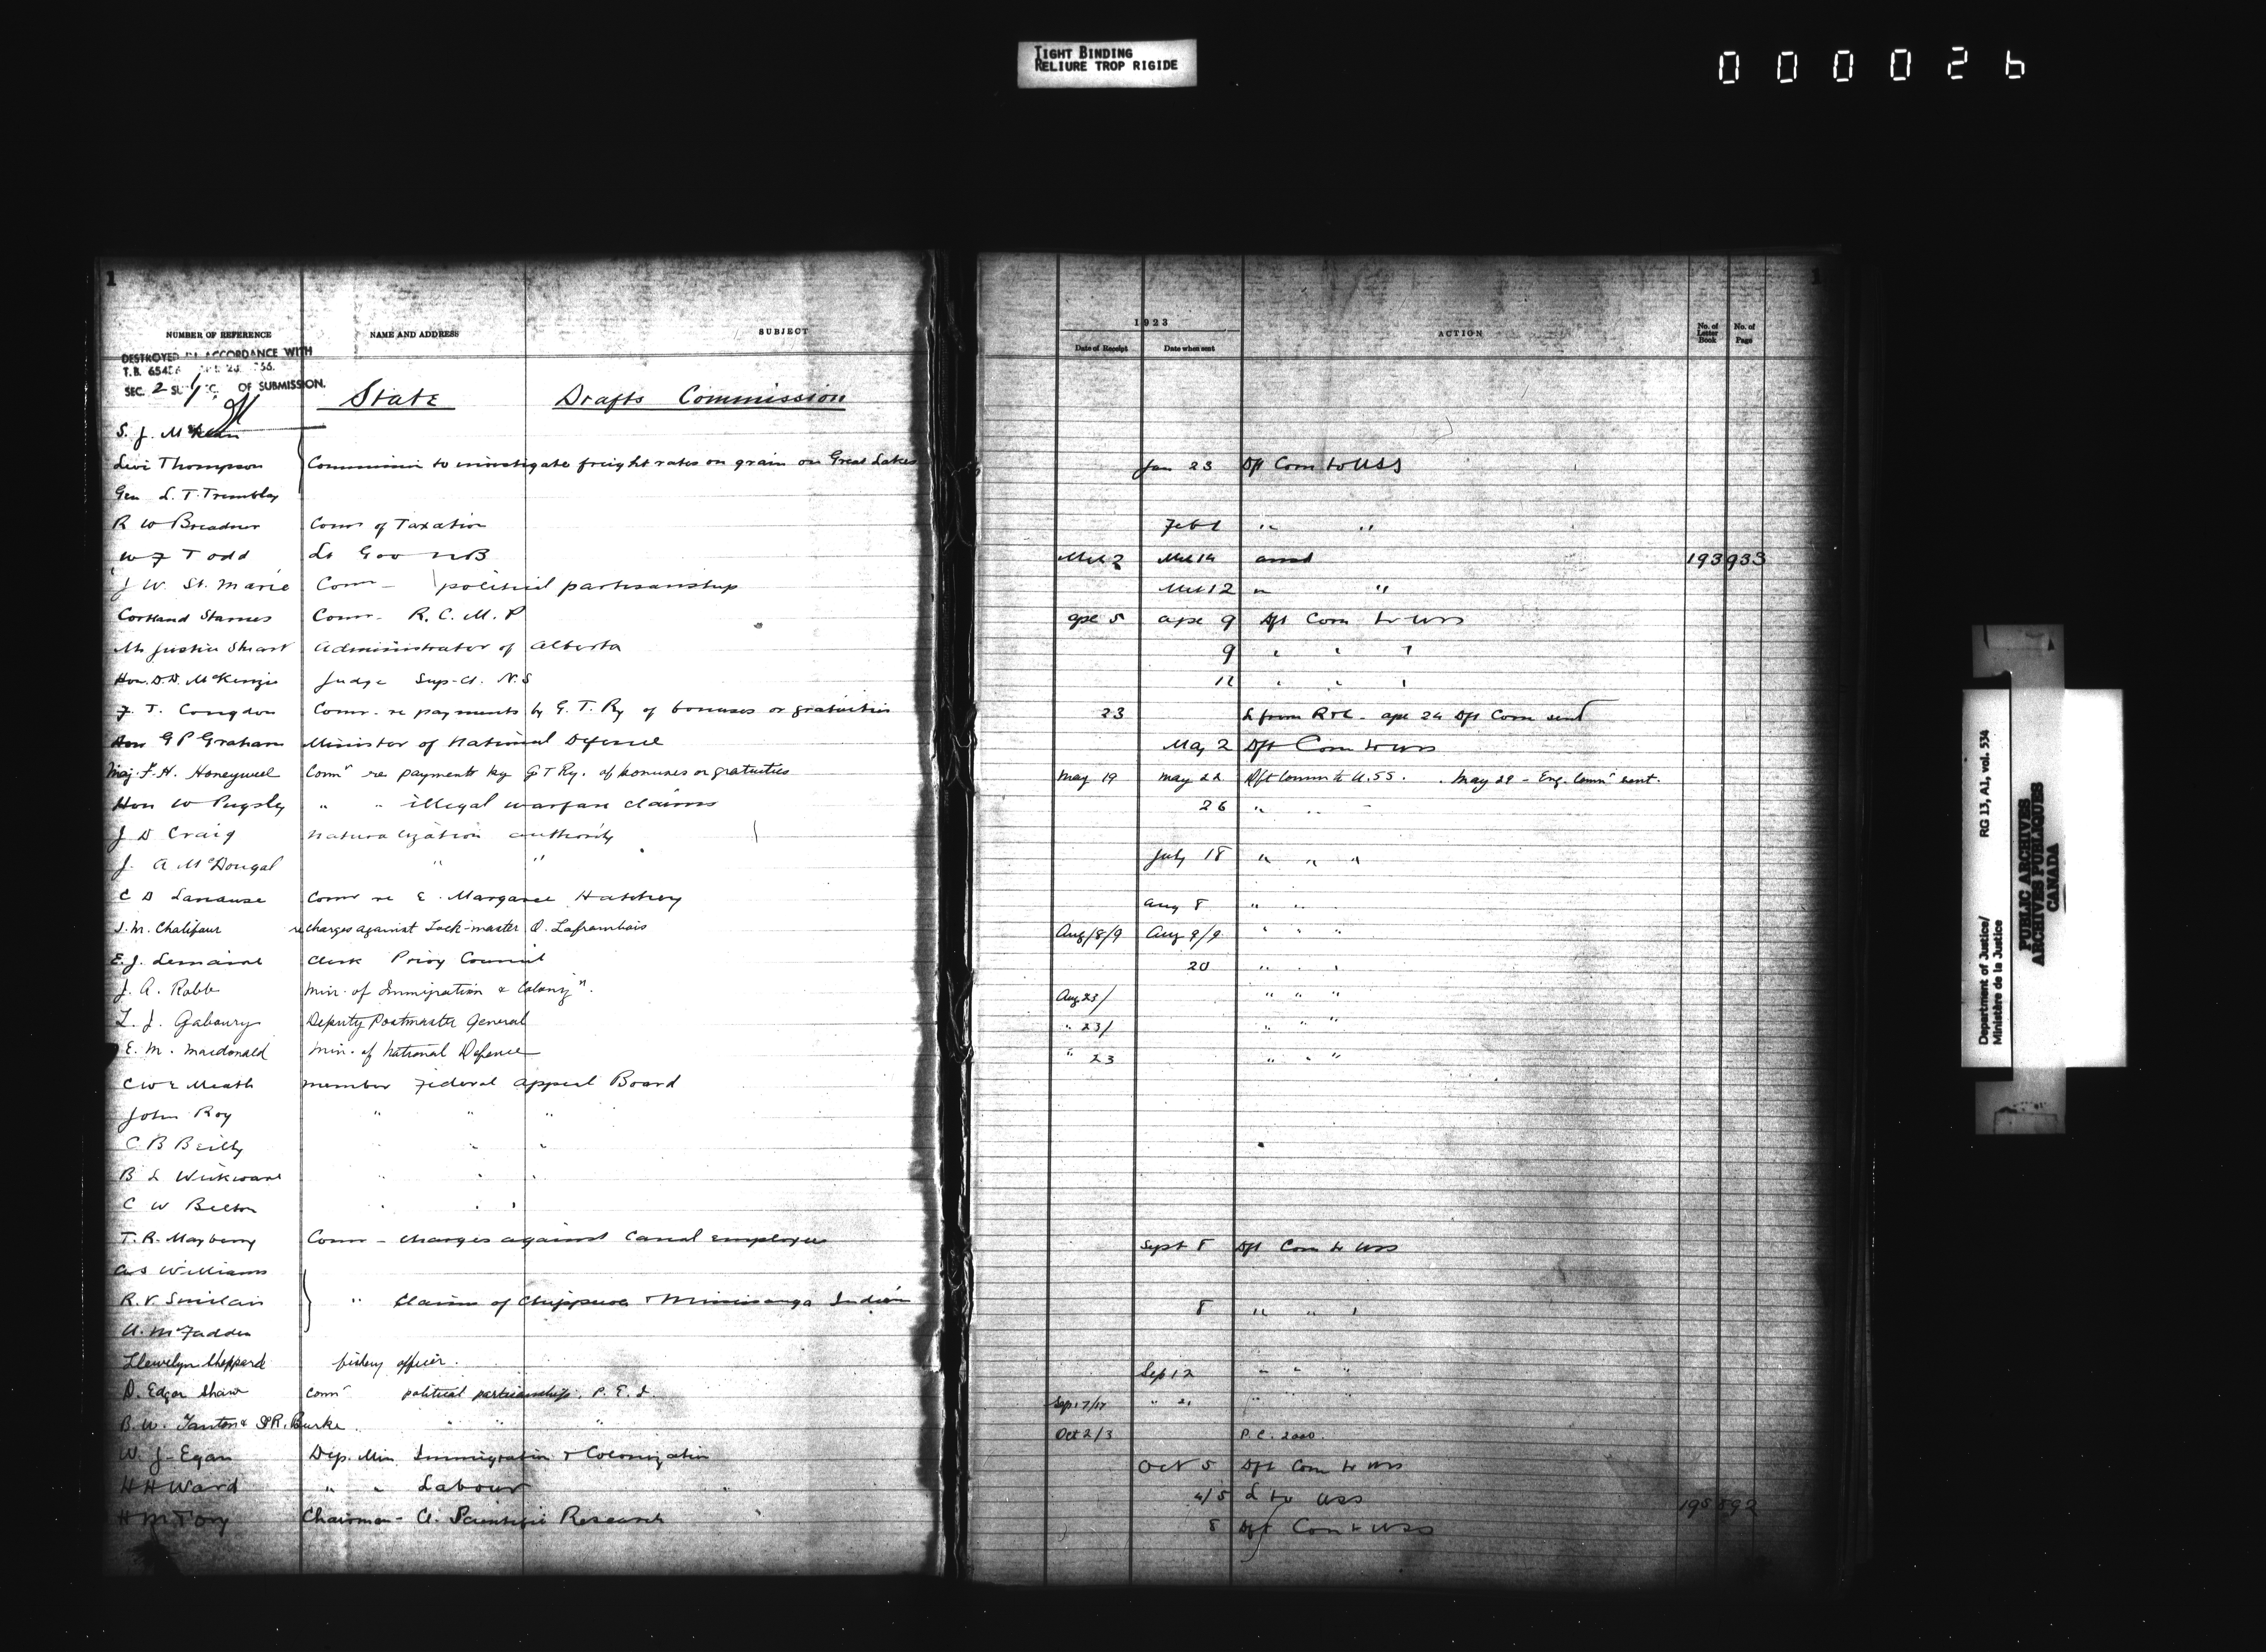 TIGHT BINDING
RELIURE TROP RIGIDE
000026
1
1
NUMBER OF REFERENCE NAME AND ADDRESS SUBJECT
1923
Date of Receipt Date when sent ACTION No. of Letter Book No. of Page
DESTROYED IN ACCORDANCE WITH
T.B. 65
SEC. 2 OF SUBMISSION.
State Drafts Commission
S. J. McLean
Levi Thompson Commission to investigate freight rates on grain on Great Lakes Jan 23 Dft Com to USS
Gen L. T. Tremblay
R W Breadner Comr of Taxation Feb 1 " "
W F Todd Lt Gov NB Mch 2 Mch 14 193 933
J W. St. Marie Comr - political partisanship Mch 12 " "
Cortland Starnes Comr - R. C. M. P Apr 5 Apr 9 Dft Com to USS
Mr Justice Stuart Administrator of Alberta 9 " " "
Hon. D. D. McKenzie Judge Sup. Ct. N. S 12 " " "
F. T. Congdon Comr - re payments by G. T. Ry of bonuses or gratuities 23 Apr 24 Dft Com sent
Hon G P Graham Minister of National Defence May 2 Dft Com to USS
Maj. F. H. Honeywell Comr re payments by G T Ry. of bonuses or gratuities May 19 May 22 Dft Comm to U.S.S. May 29 - Eng. Comn sent.
Hon W Pugsley " " illegal warfare claims 26 " " "
J D Craig Naturalization authority
J. A McDougal " " July 18 " " "
C D Comr re E. Margaree Hatchery Aug 8 " "
J. M. Chalifour re charges against Lock-master O. Laframbois Aug/8/9 Aug 9/9 " " "
E. J. Lemaire Clerk Privy Council 20 " " "
J. A. Robb Min. of Immigration & Colonizn. Aug 23/ " " "
L. J. Gaboury Deputy Postmaster General " 23/ " " "
E. M. Macdonald Min. of National Defence " 23 " " "
C W E Meath Member Federal Appeal Board
John Roy " " "
C B Reilly " " "
B L Wickware " " "
C W Belton " " "
T. R. Mayberry Comr - charges against Canal employees Sept 8 Dft Com to USS
A S Williams
R. V. Sinclair " Claims of Chippewa & Mississauga Indian 8 " " "
U. McFadden
Llewelyn Sheppard fishery officer. Sep 12 " " "
D. Edgar Shaw Comr political partisanship. P. E. I. Sep. 17/17 " 21 " " "
B. W. Tanton & R. Burke " " " Oct 2/3 P.C. 2000.
W. J. Egan Dep. Min Immigration & Colonization Oct 5 Dft Com to USS
H H Ward " " Labour 4/5 L to USS 195 592
H M Tory Chairman - C. Scientific Research 8 Dft Com to USS
Department of Justice/ RG 13, A1, vol. 534
Ministère de la Justice
PUBLIC ARCHIVES
ARCHIVES PUBLIQUES
CANADA